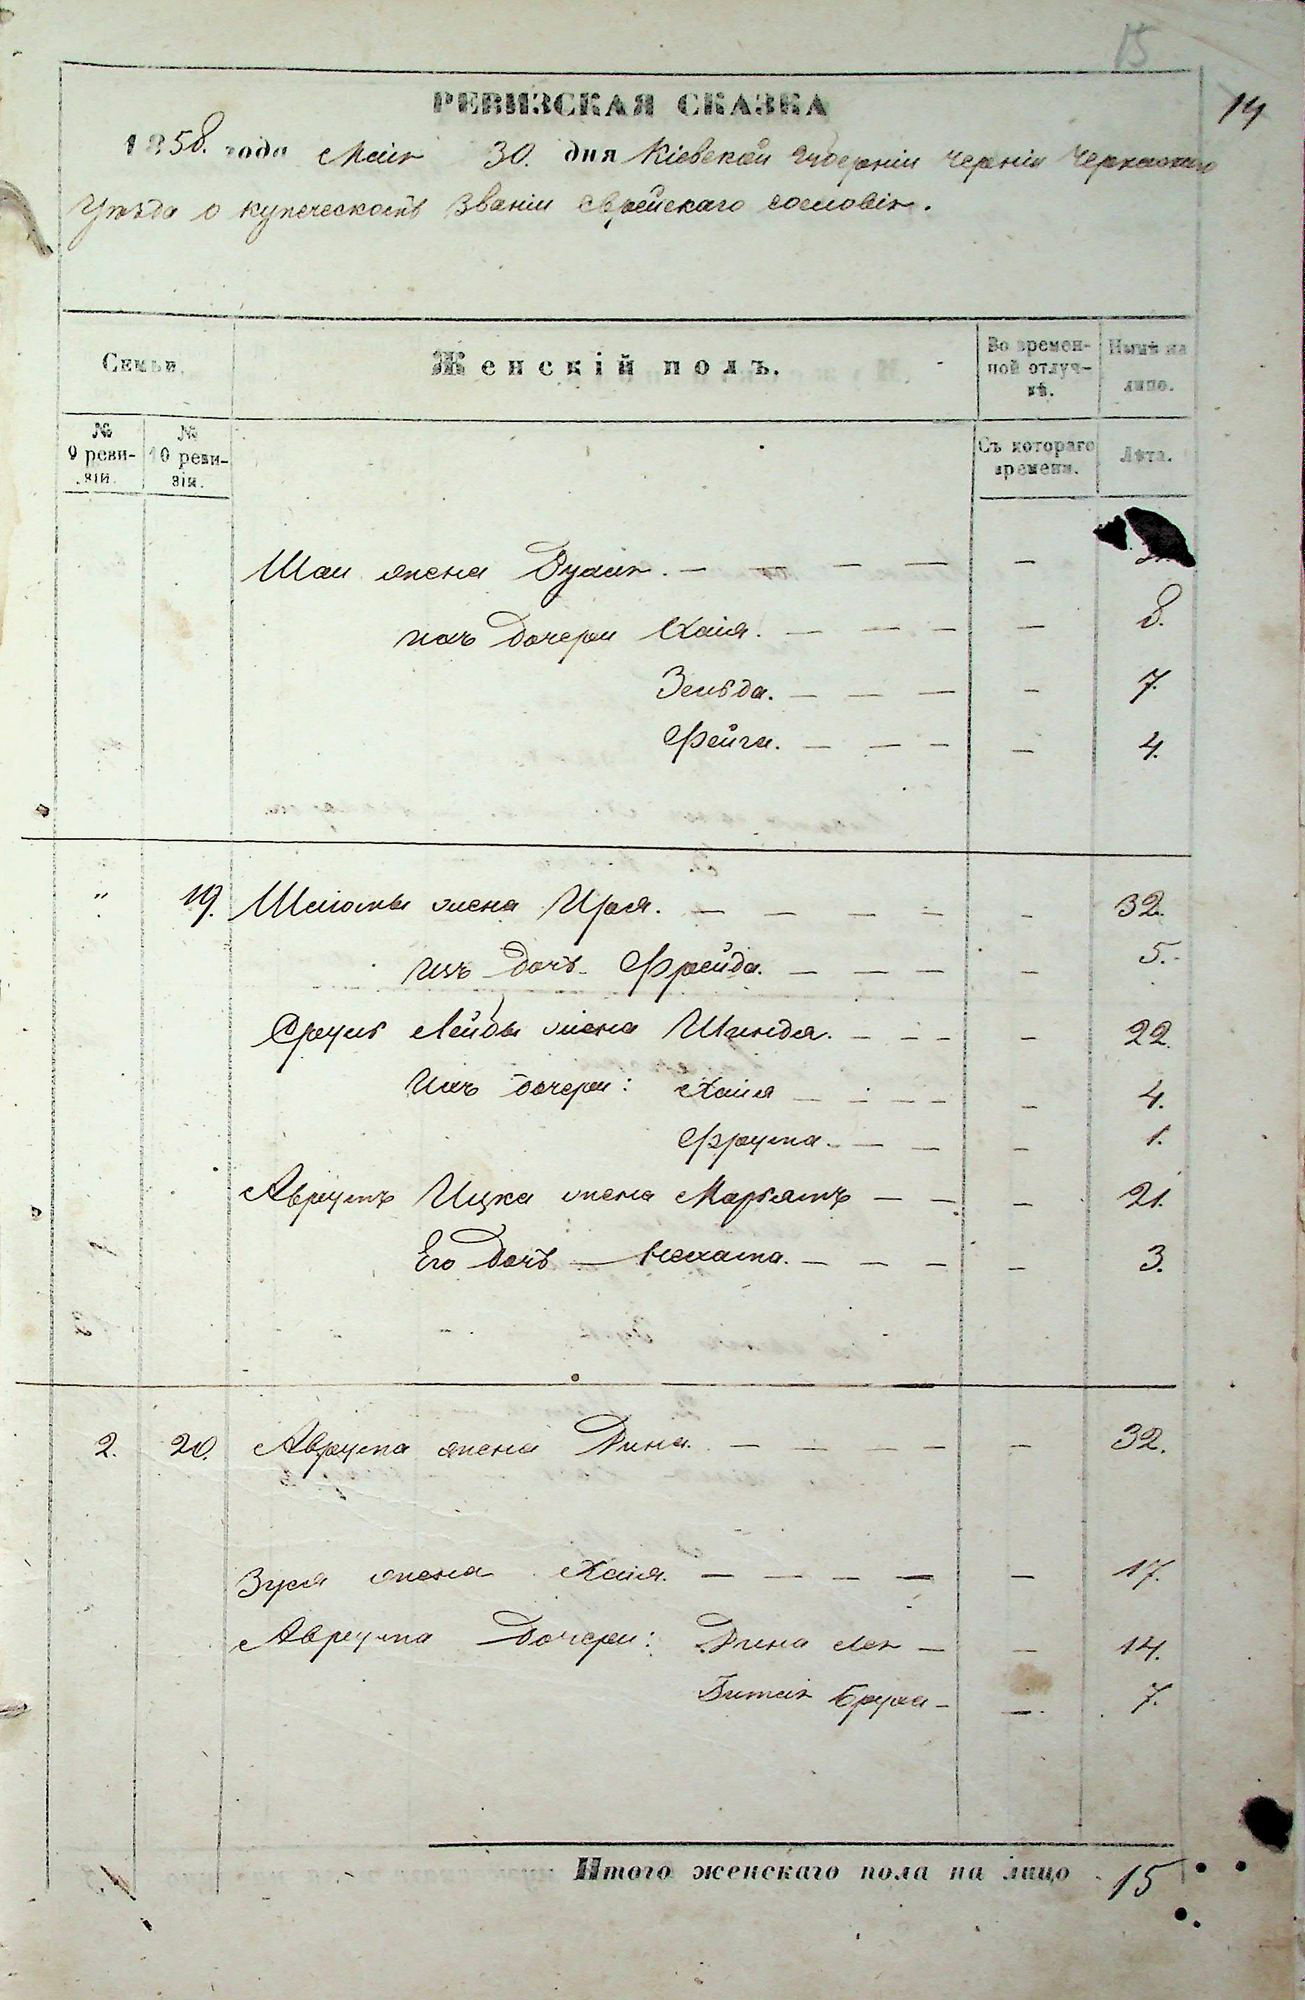 15
14
РЕВИЗСКАЯ СКАЗКА
1858. года Маія 30. дня Кіевской Губерніи Черкаскаго
Уѣзда о купеческомъ званіи Еврейскаго сословія.
Семьи.
Женскій полъ.
Во времен-
ной отлуч-
кѣ.
Нынѣ на
лицо.
№
9 реви-
зіи.
№
10 реви-
зіи.
Съ котораго
времени.
Лѣта.
Шаи жена — — — — —
ихъ дочери Хаія. — — — — 8.
Зельда. — — — — 7.
Фейга. — — — — 4.
" 19. жена Цря. — — — — — 32.
ихъ дочь Фрейда. — — — — 5.
Сруль Лейбы жена Шиндля. — — — — 22.
Ихъ дочери: Хаия — — — — — 4.
Фрума. — — — — 1.
Аврумъ Ицка жена Марьямъ — — — 21.
Его дочь — Нехама. — — — — 3.
2. 20. Аврума жена Дина. — — — — — 32.
Зуся жена Хаія. — — — — — 17.
Аврума Дочери: Дина Лея — — 14.
Гитля Бруха — — 7.
Итого женскаго пола на лицо 15